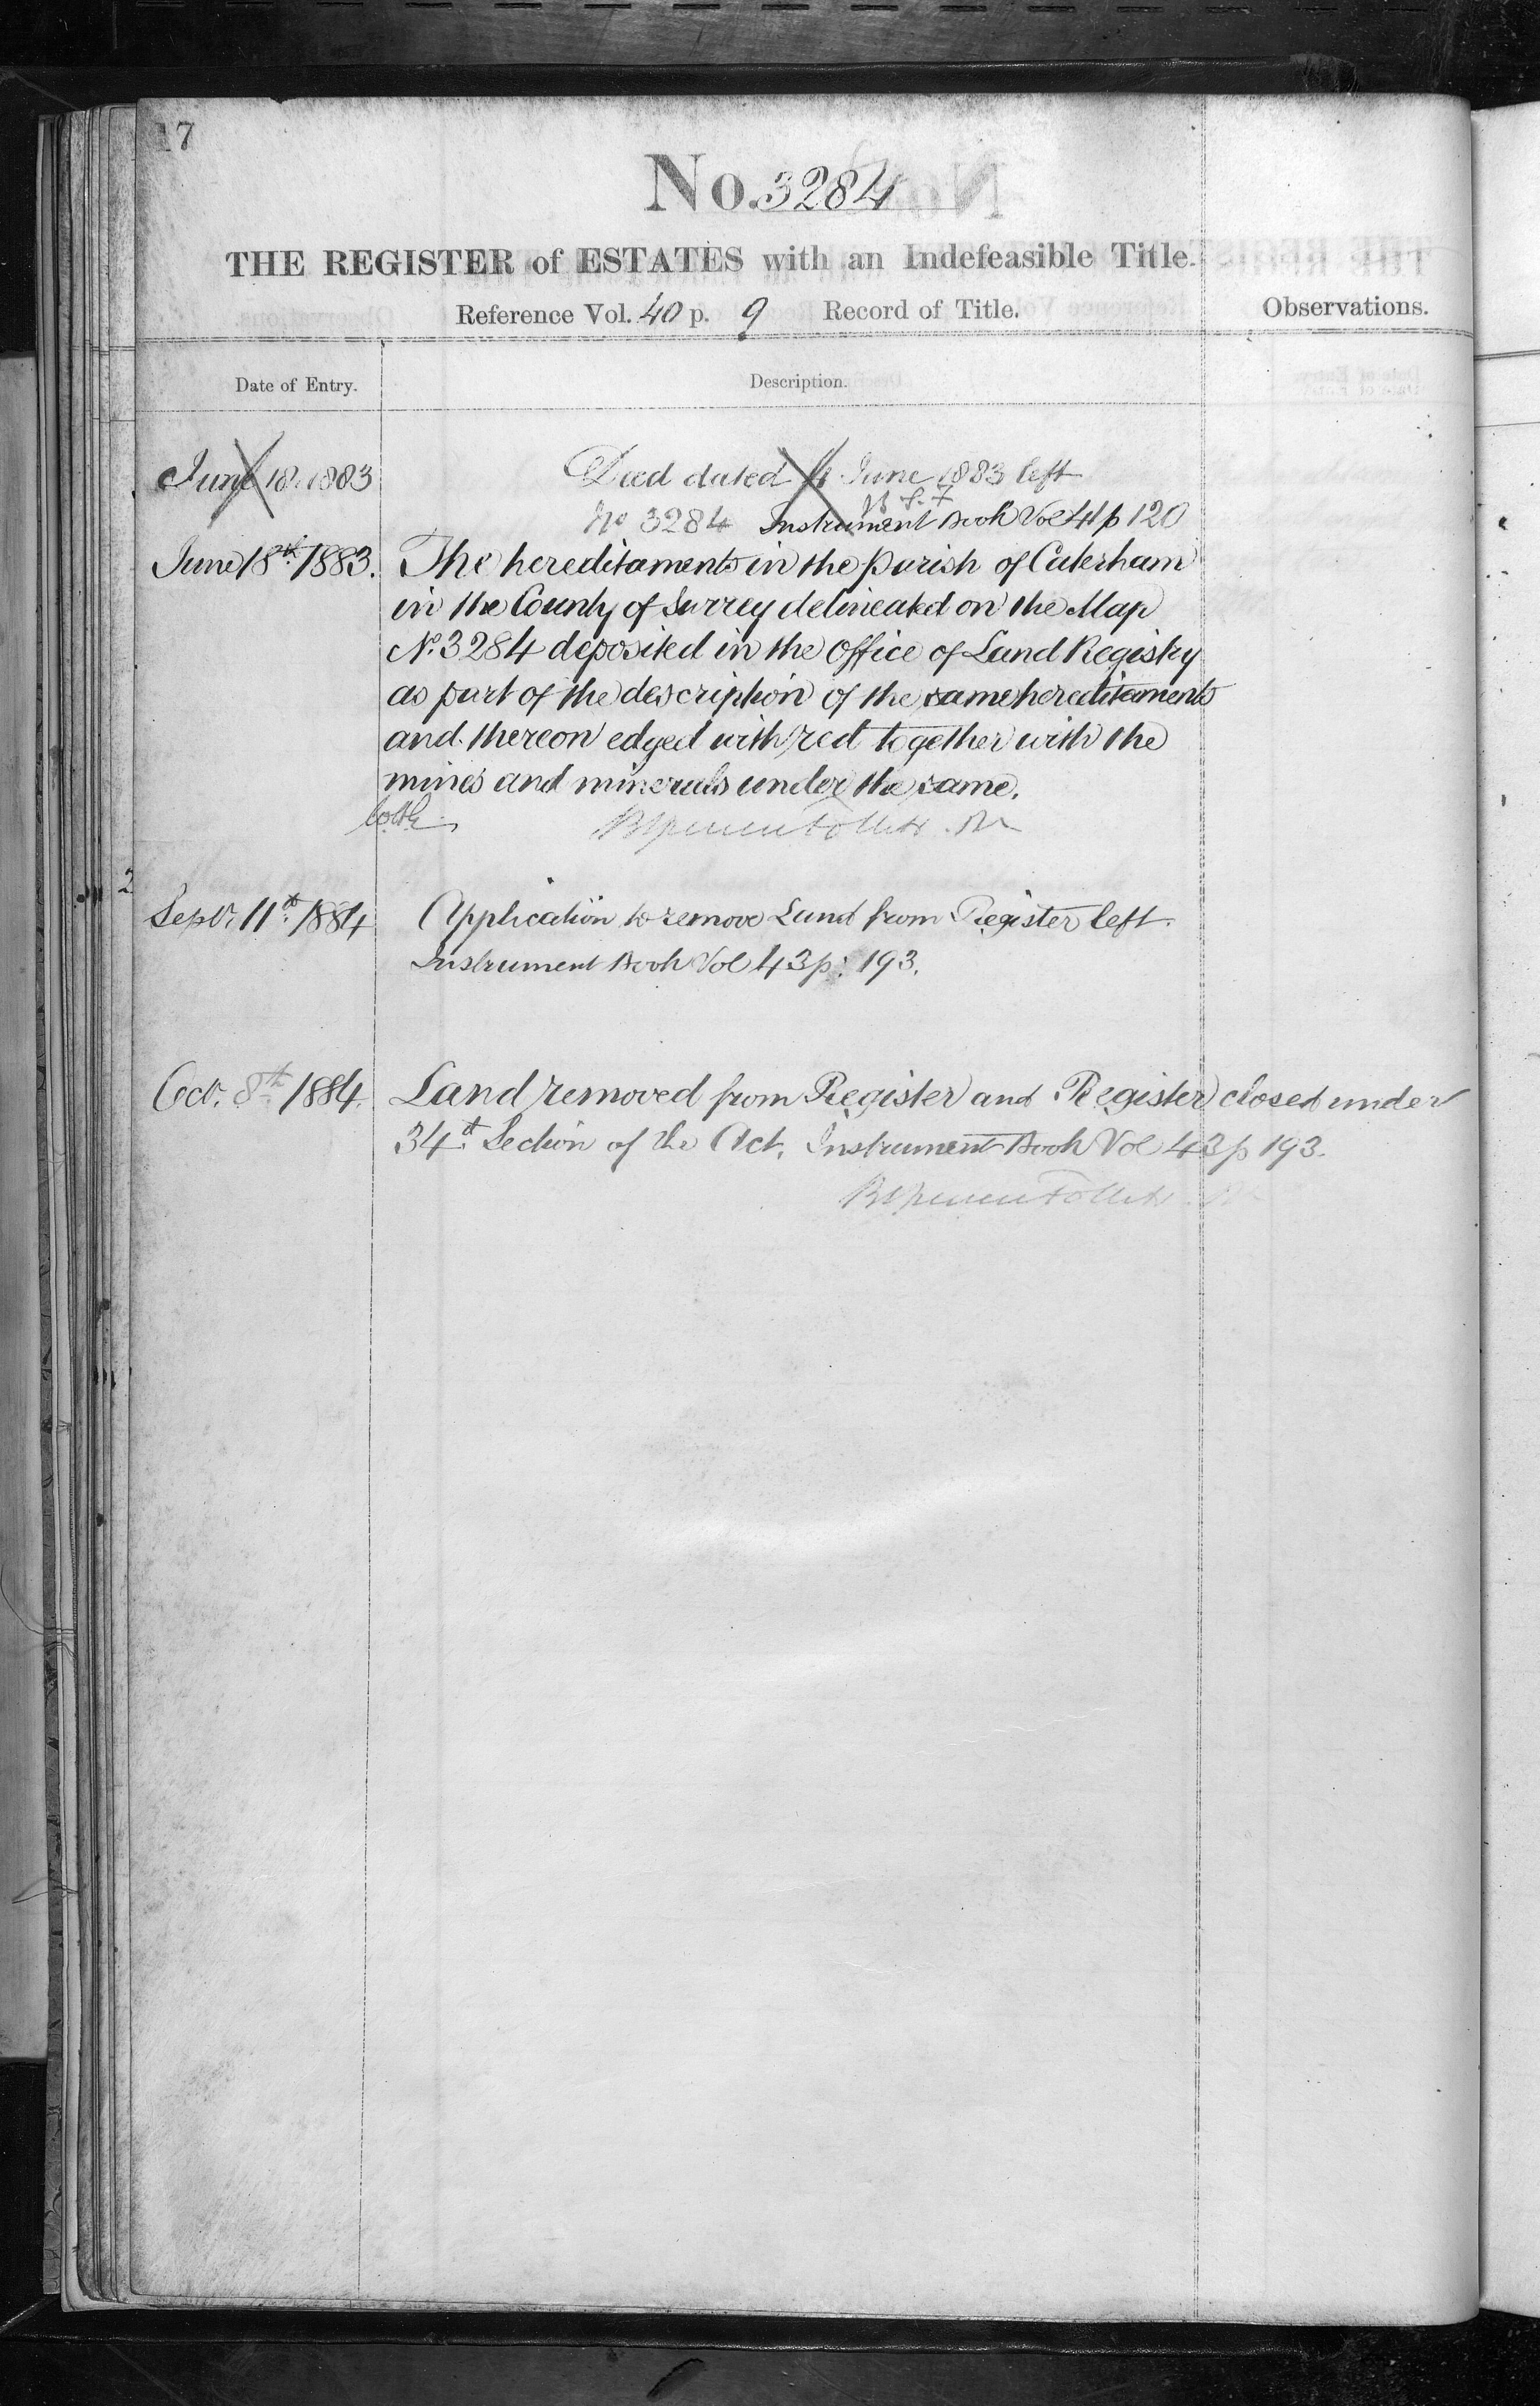 17
No. 3284
THE REGISTER of ESTATES with an Indefeasible Title.
Reference Vol. 40 p. 9 Record of Title.
Observations.
Date of Entry.
Description.
June 18 1883
Deed dated June 1883 left
No 3284 Instrument Book Vol 41 p 120
June 18th 1883.
The hereditaments in the parish of Caterham
in the County of Surrey delineated on the Map
No. 3284 deposited in the Office of Land Registry
as part of the description of the same hereditaments
and thereon edged with red together with the
mines and minerals under the same.
2
Septr. 11th 1884
Application to remove Land from Register left.
Instrument Book Vol 43 p: 193.
Oct. 8th 1884.
Land removed from Register and Register closed under
34th Section of the Act. Instrument Book Vol 43 p 193.